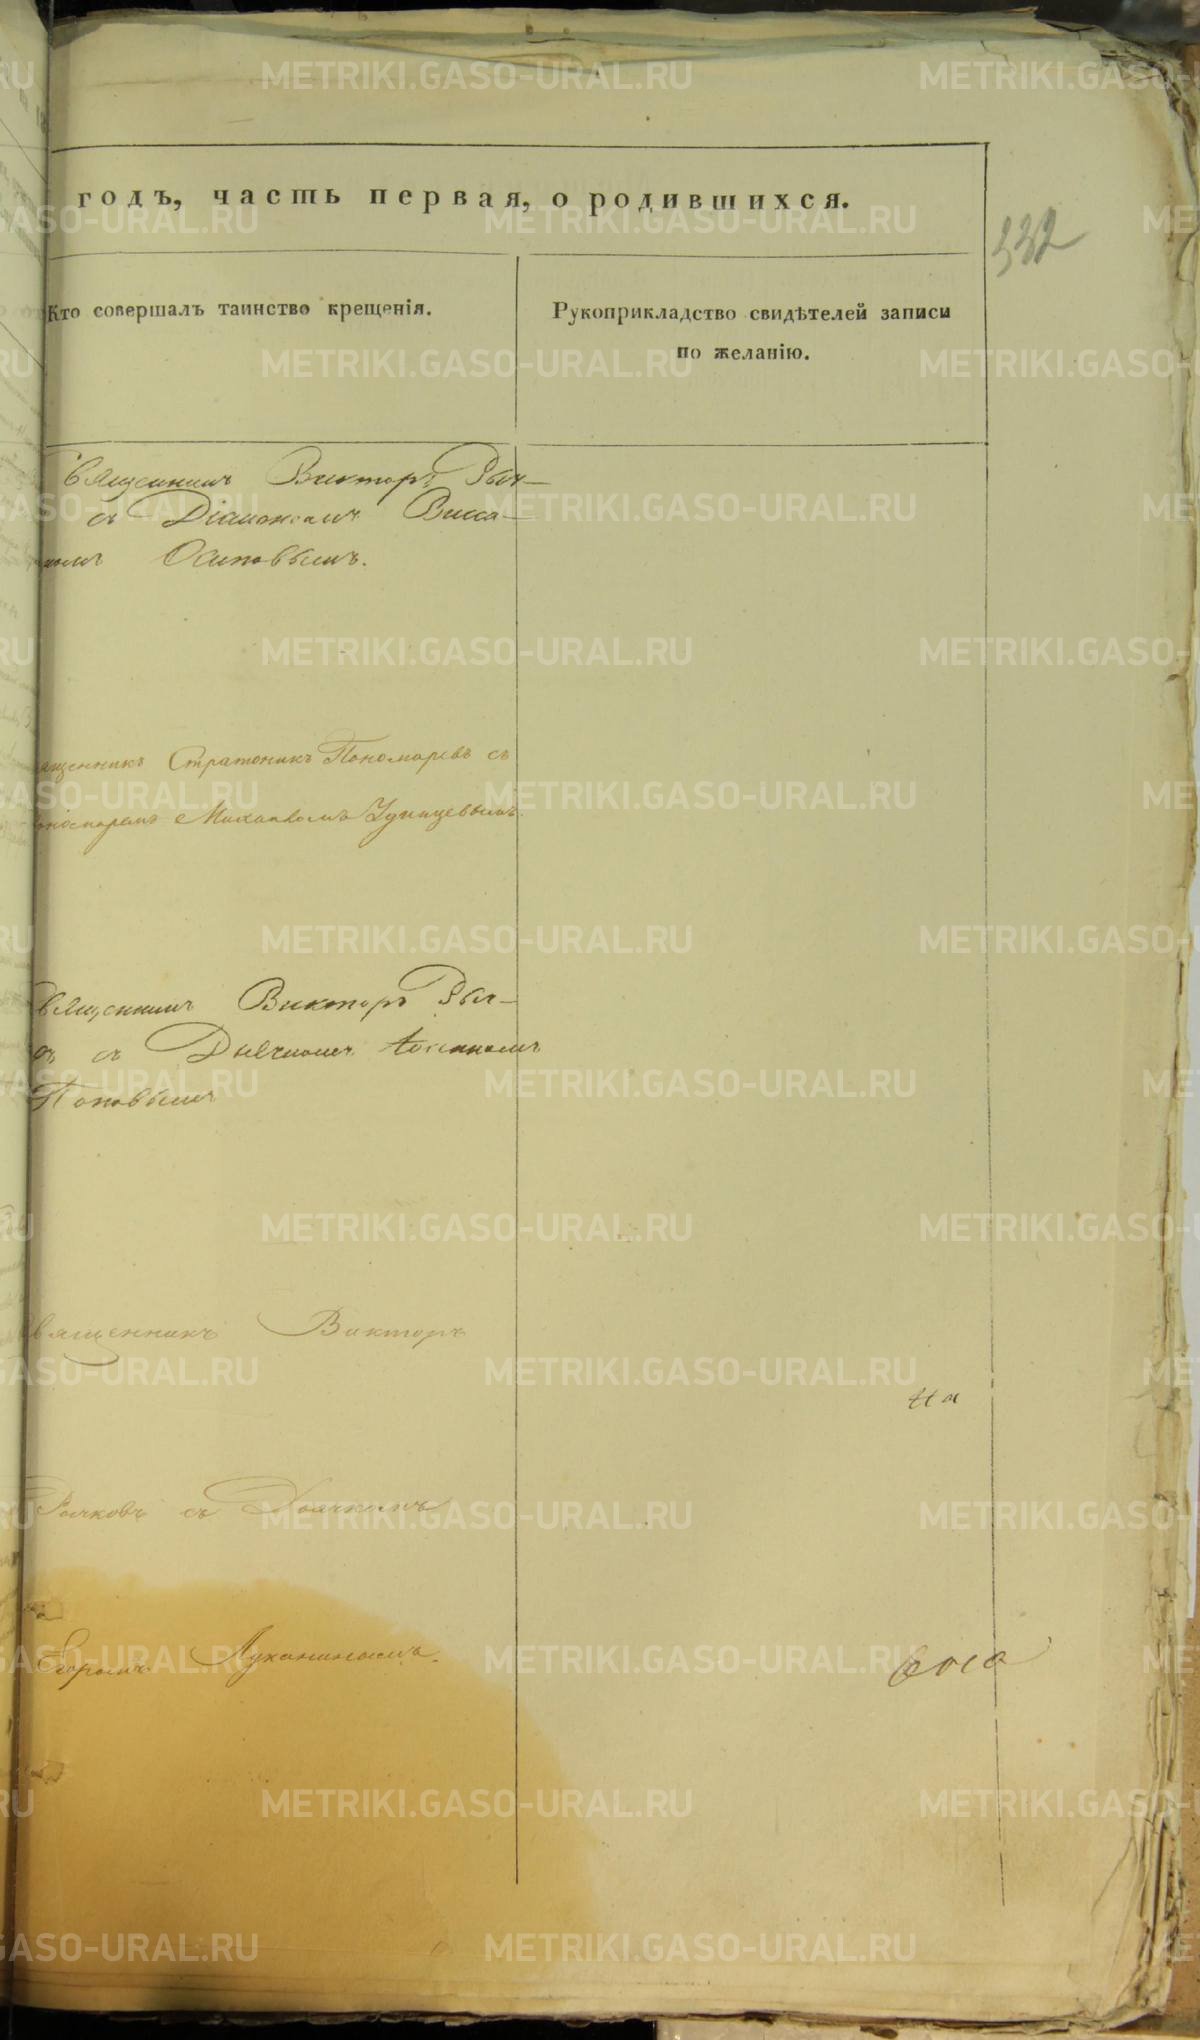 METRIKI.GASO-URAL.RU
годъ, часть первая, о родившихся.
332
Кто совершалъ таинство крещенія.
Рукоприкладство свидѣтелей записи
по желанію.
Священникъ Викторъ Рыч-
съ Діакономъ Висса-
Осиповымъ.
Священникъ Стратоникъ Пономаревъ съ
Пономаремъ Михаиломъ
Священникъ Викторъ Рыч-
съ Дьячкомъ
Поповымъ
Священникъ Викторъ
На
Рычковъ съ Дьячкомъ
Егоромъ Луканинымъ.